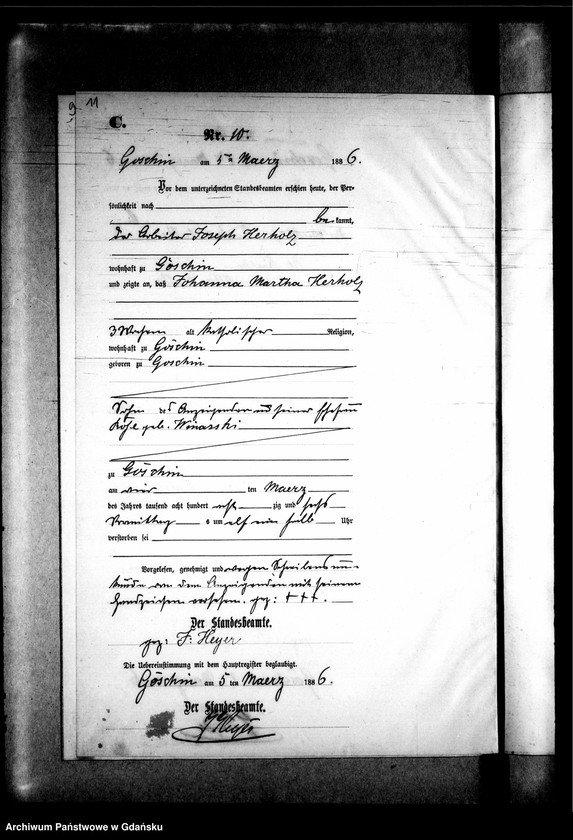 9 11
C.
Nr. 10.
Goschin am 5ten Maerz 1886.
Vor dem unterzeichneten Standesbeamten erschien heute, der Per-
sönlichkeit nach
bekannt,
Der Arbeiter Joseph Herholz
wohnhaft zu Göschin
und zeigte an, daß Johanna Martha Herholz
3 Wochen alt katholischer Religion,
wohnhaft zu Göschin
geboren zu Goschin
des Anzeigenden und seiner Ehefrau
Rose geb. Winarski
zu Göschin
am vier ten Maerz
des Jahres tausend acht hundert acht zig und sechs
Vormittag s um elf ein halb Uhr
verstorben sei
Vorgelesen, genehmigt und wegen Schreibensun-
kunde von dem Anzeigenden mit seinem
Handzeichen versehen. gez: +++.
Der Standesbeamte.
gez: F. Heyer
Die Uebereinstimmung mit dem Hauptregister beglaubigt.
Göschin am 5 ten Maerz 1886.
Der Standesbeamte.
Heyer
Archiwum Państwowe w Gdańsku